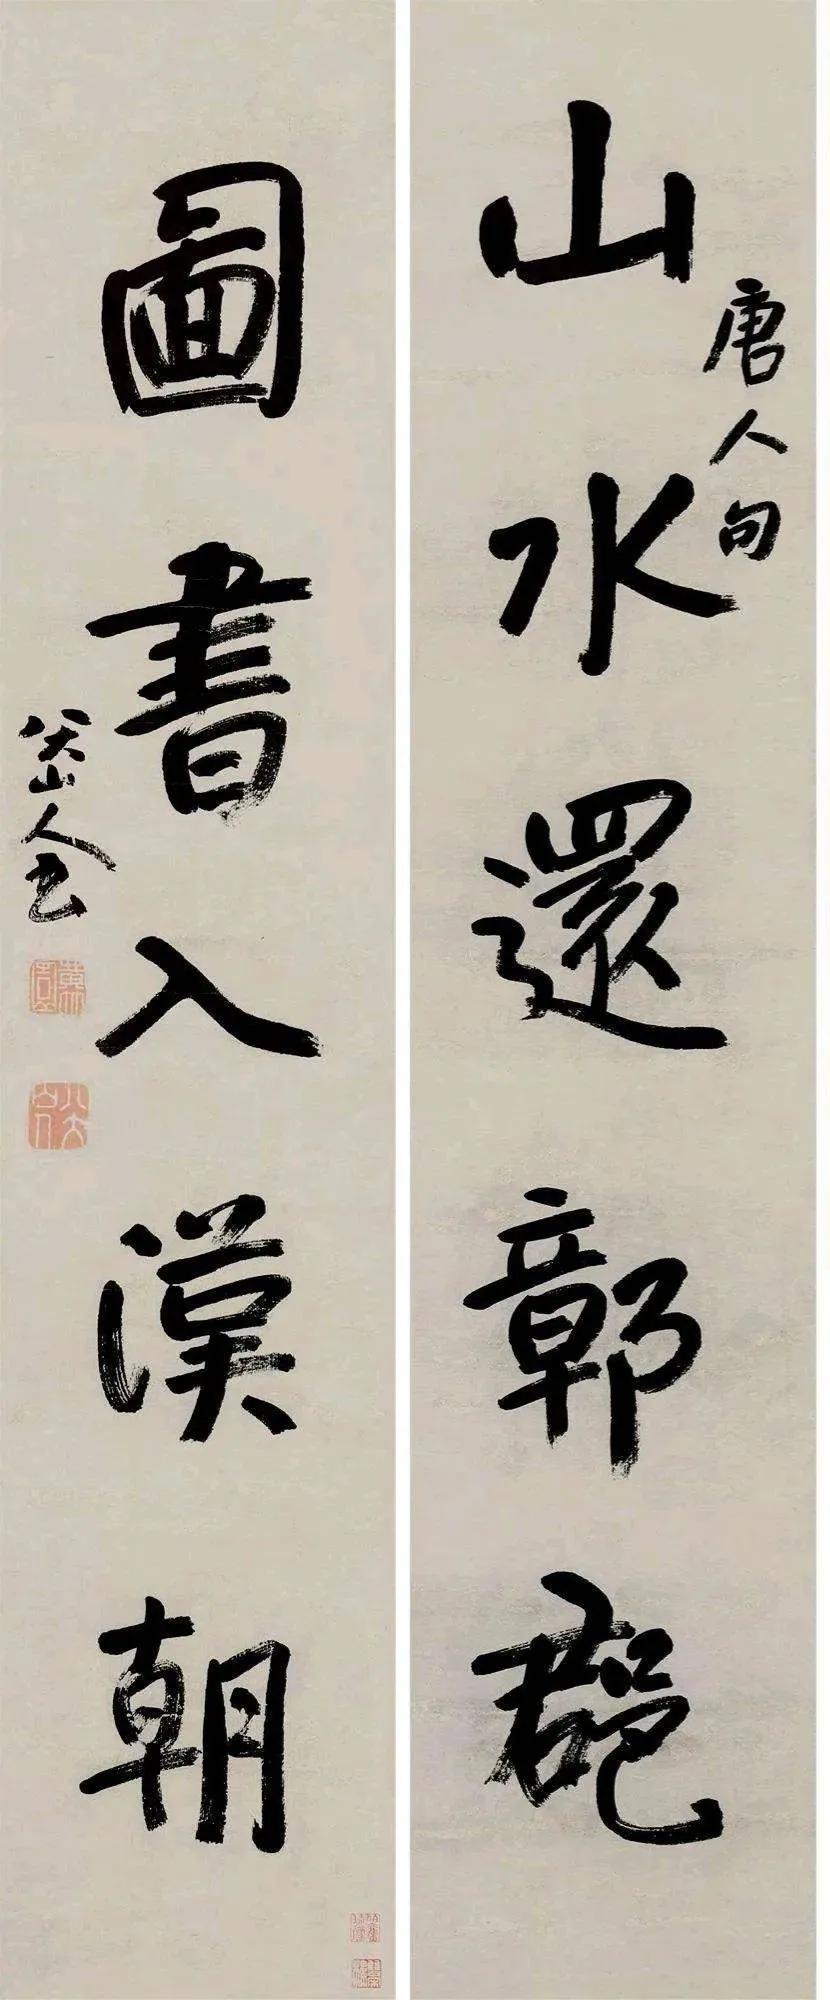 唐人句
山水還鄣郡
圖書入漢朝
八大山人書
八大山人